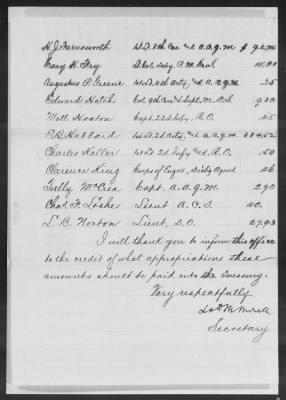 H. J. Farnsworth 1st Lt. 8th Cav. and a.a.q.m. $
Cary H. Fry D. Col. Depy. P. M. Genl.
Augustus P. Greene Lt. 4th Arty. and a.a.q.m. .25
Edward Hatch Col. 9th Cav.
Matt Hooton Capt. 22d Infy. A.O.
Hubbard 1st Lt. 2d Arty. and a.a.q.m.
Charles Keller 1st Lt. 2d Infy. and A.O. .50
Clarence King Corps of Engrs. Disbg. Agent .46
Tully McCrea Capt. A.a.q.m. 2.90
Chas. F. Loshe Lieut A.C.S. 40.
L. B. Norton Lieut. S.O. 27.93
I will thank you to inform this office
to the credit of what appropriations these
amounts should be paid into the Treasury.
Very respectfully
Secretary